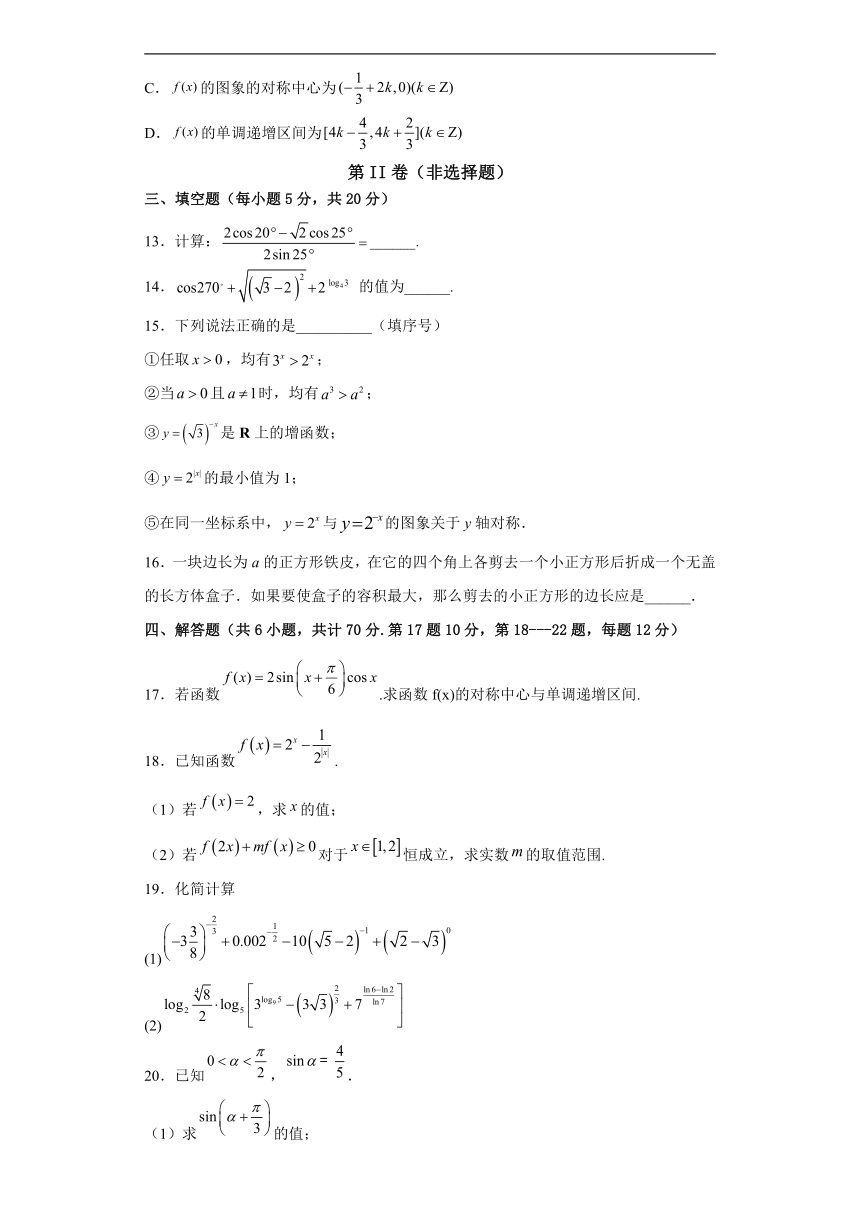 C．f(x)的图象的对称中心为(−1/3+2k,0)(k∈Z)
D．f(x)的单调递增区间为[4k−4/3,4k+2/3](k∈Z)
第II卷（非选择题）
三、填空题（每小题5分，共20分）
13．计算：(2cos20°−√2cos25°)/(2sin25°)=______.
14．cos270°+√((√3−2)²)+2^(log₄3) 的值为______.
15．下列说法正确的是__________（填序号）
①任取x>0，均有3ˣ>2ˣ；
②当a>0且a≠1时，均有a³>a²；
③y=(√3)^(−x)是R上的增函数；
④y=2^|x|的最小值为1；
⑤在同一坐标系中，y=2ˣ与y=2^(−x)的图象关于y轴对称．
16．一块边长为a的正方形铁皮，在它的四个角上各剪去一个小正方形后折成一个无盖
的长方体盒子．如果要使盒子的容积最大，那么剪去的小正方形的边长应是______．
四、解答题（共6小题，共计70分.第17题10分，第18---22题，每题12分）
17．若函数f(x)=2sin(x+π/6)cosx.求函数f(x)的对称中心与单调递增区间.
18．已知函数f(x)=2ˣ−1/2^|x|.
（1）若f(x)=2，求x的值；
（2）若f(2x)+mf(x)≥0对于x∈[1,2]恒成立，求实数m的取值范围.
19．化简计算
(1)(−3 3/8)^(−2/3)+0.002^(−1/2)−10(√5−2)^(−1)+(√2−√3)^0
(2)log₂(⁴√8/2)·log₅[3^(log₉5)−(3√3)^(2/3)+7^((ln6−ln2)/ln7)]
20．已知0<α<π/2，sinα=4/5．
（1）求sin(α+π/3)的值；